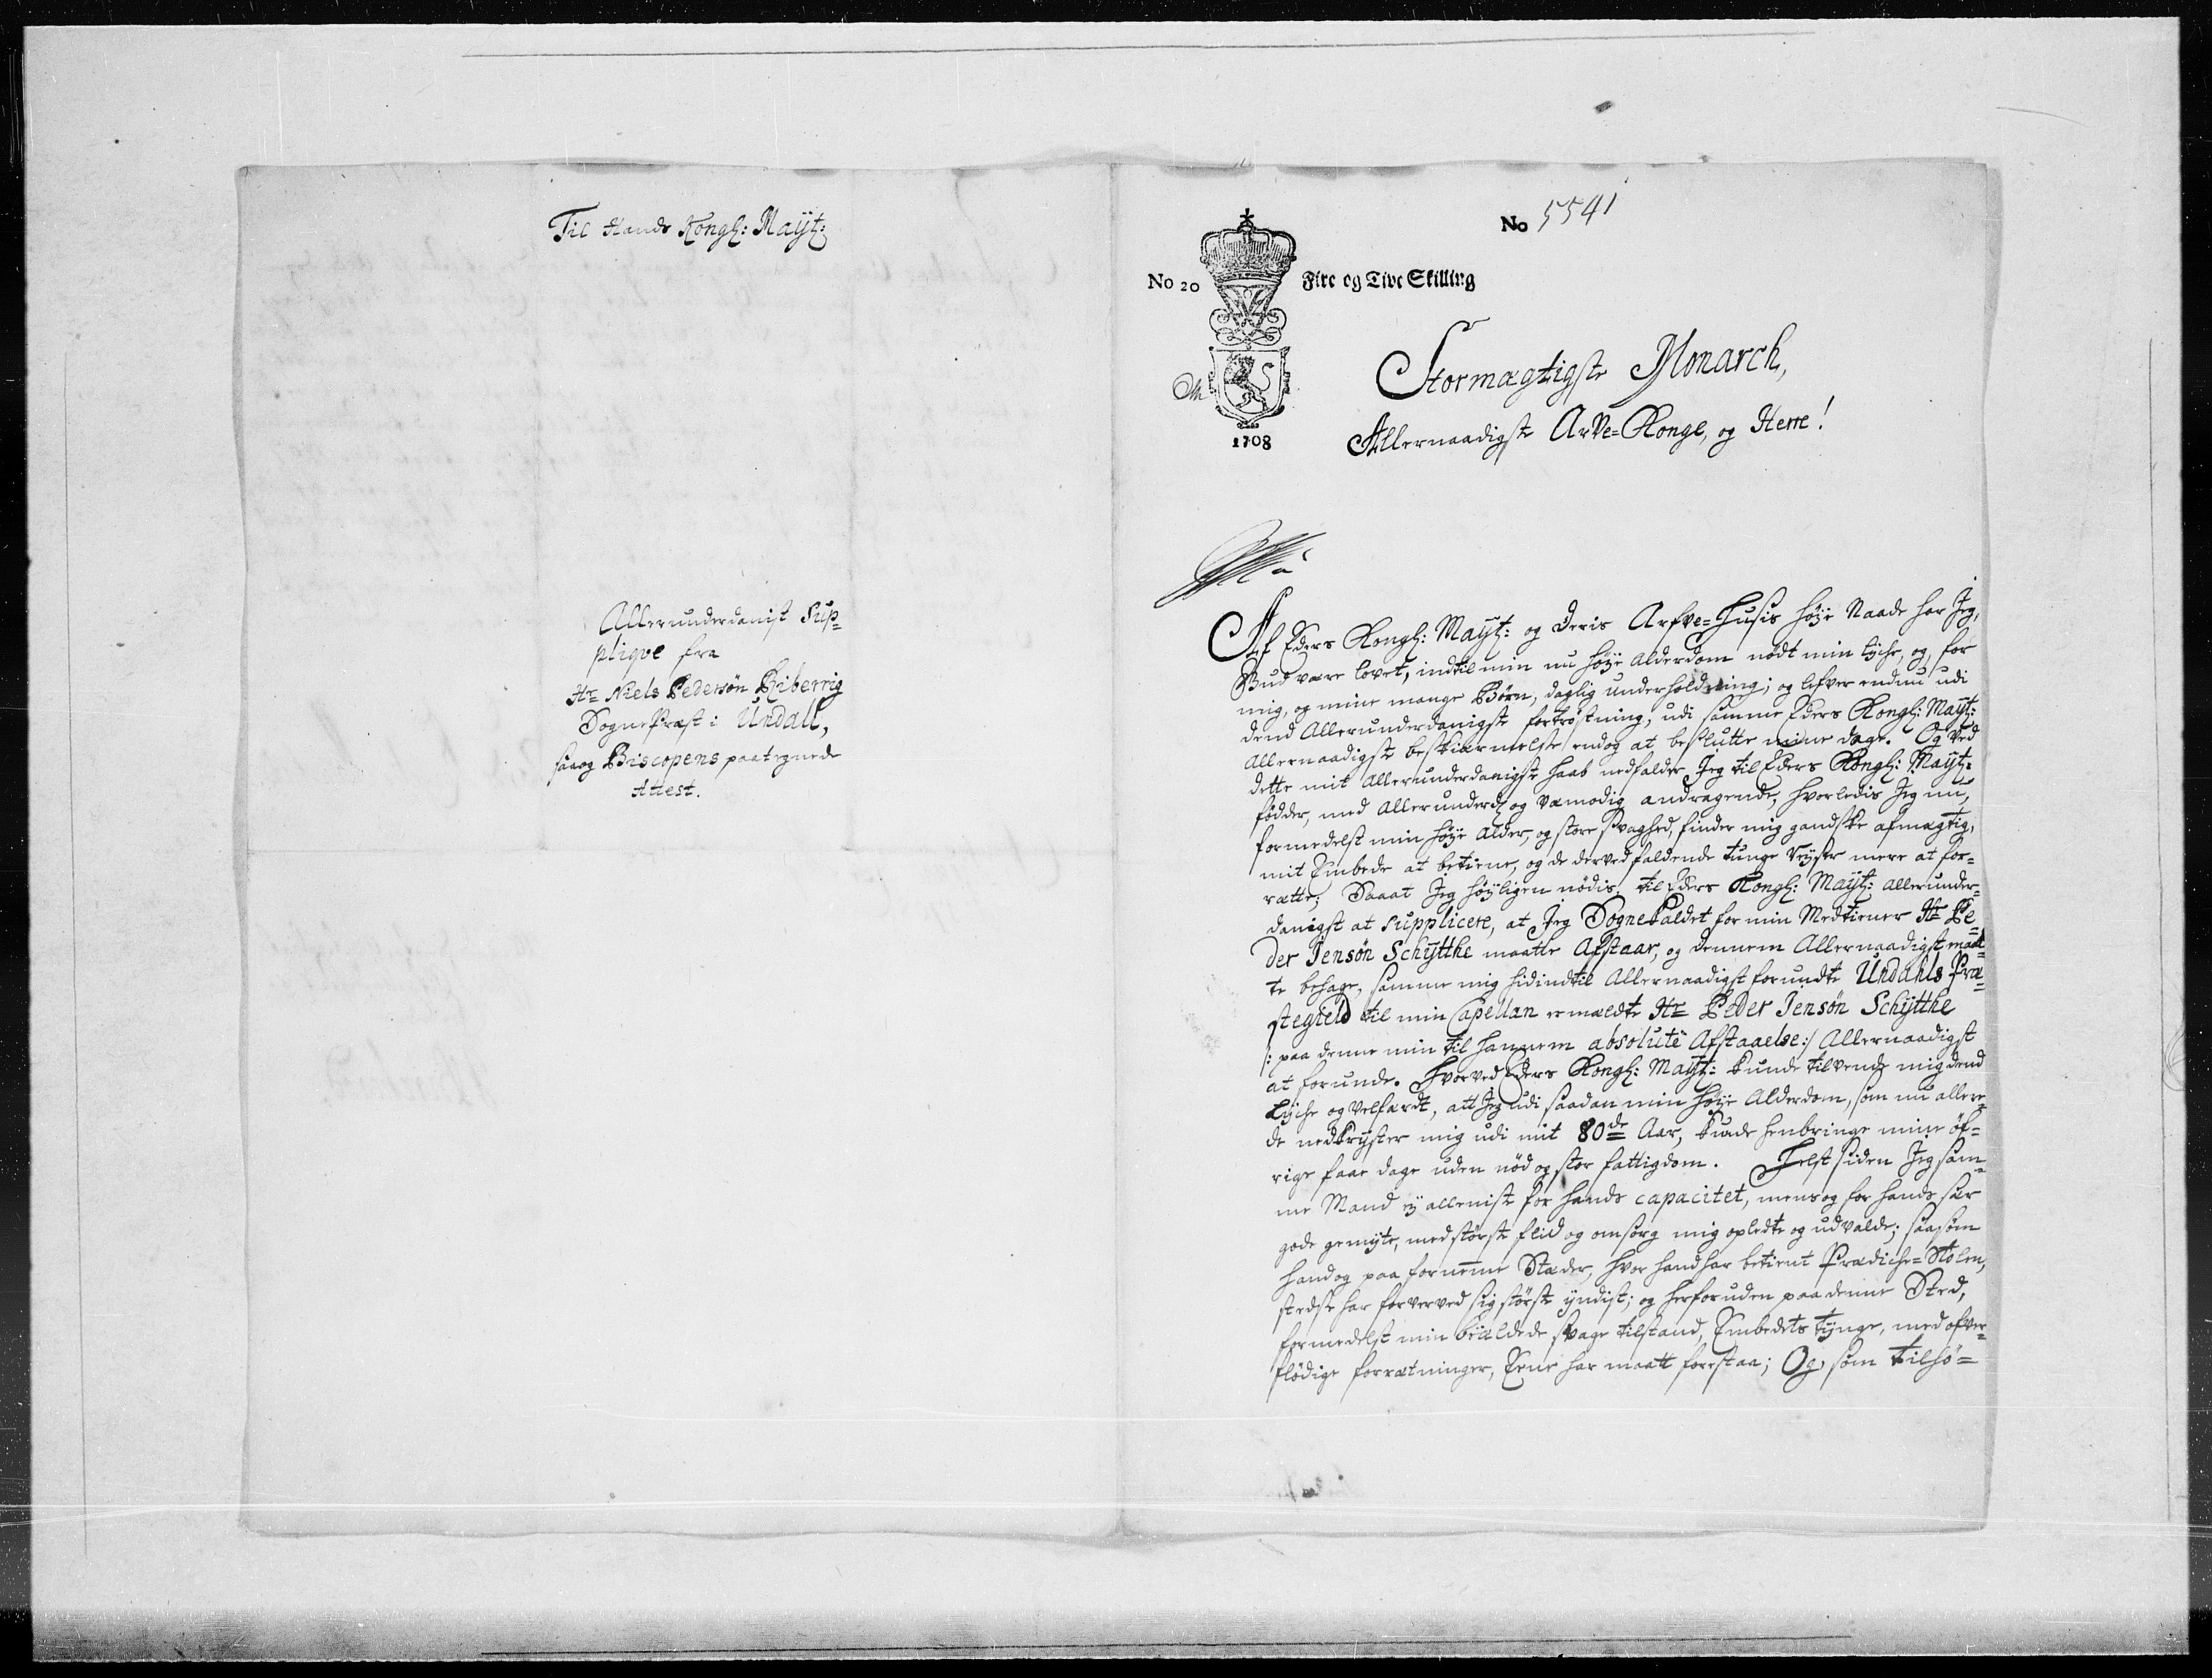 Til Hands Kongl: Mayt:
Allerunderdanist Sup=
pliqve fra
Hr Niels Pedersön Riberrig
Sognepræst i Undall,
saa og Biscopens paategnede
Attest.
No 5541
No 20 Fire og Tive Skilling
1708
Stormægtigste Monarch,
Allernaadigste Arve=Konge, og Herre!
Af Eders Kongl: Mayt: og Deris Arfve=Husis høye Naade har Jeg,
Gud være lovet, indtil min nu høye alderdom nødt min lyche, og, for
mig, og mine mange Børn, daglig underholdning; og lefver endnu udi
dend Allerunderdanigste fortrøstning, udi samme Eders Kongl: Mayt:
Allernaadigste beskiærmelse endog at beslutte mine dage. Og ved
dette mit allerunderdanigste haab nedfalder Jeg til Eders Kongl: Mayt:
fødder, med allerunderd: og vemodig andragende, hvorledis Jeg nu,
formedelst min høye alder, og store svaghed, finder mig gandske afmægtig,
mit Embede at betiene, og de derved faldende tunge Reyser mere at for=
rætte; Saaat Jeg høyligen nødis, til Eders Kongl: Mayt: allerunder=
danigst at supplicere, at Jeg Sognekaldet for min Medtiener Hr Pe=
der Jensön Schytthe maatte Afstaar, og dennem Allernaadigst maat=
te behage, samme mig hidindtil Allernaadigst forundte Undahls Præ=
stegield til min Capellan ermældte Hr Peder Jensön Schytthe
/: paa denne min til hannem absolute Afstaaelse :/ Allernaadigst
at forunde. Hvorved Eders Kongl: Mayt: kunde tilvende mig dend
Lyche og velfærdt, att Jeg udi saadan min høye Alderdom, som nu allere=
de nedtryster mig udi mit 80de Aar, kunde henbringe mine öf=
rige faae dage uden nød og stor fattigdom. Helst siden Jeg sam=
me Mand ey allenist for hands capacitet, mens og for hands sær
gode gemyte, med største flid og omsorg mig opledte og udvalde; saasom
hand og paa fornemme Stæder, hvor hand har betient Prædiche=Stolen,
stedse har forverved sig største yndist; og herforuden paa denne Sted,
formedelst min bældede svage tilstand, Embedets tynge, med ofver=
flødige forrætninger, Eene har maatt forestaa; Og, som tilhø=